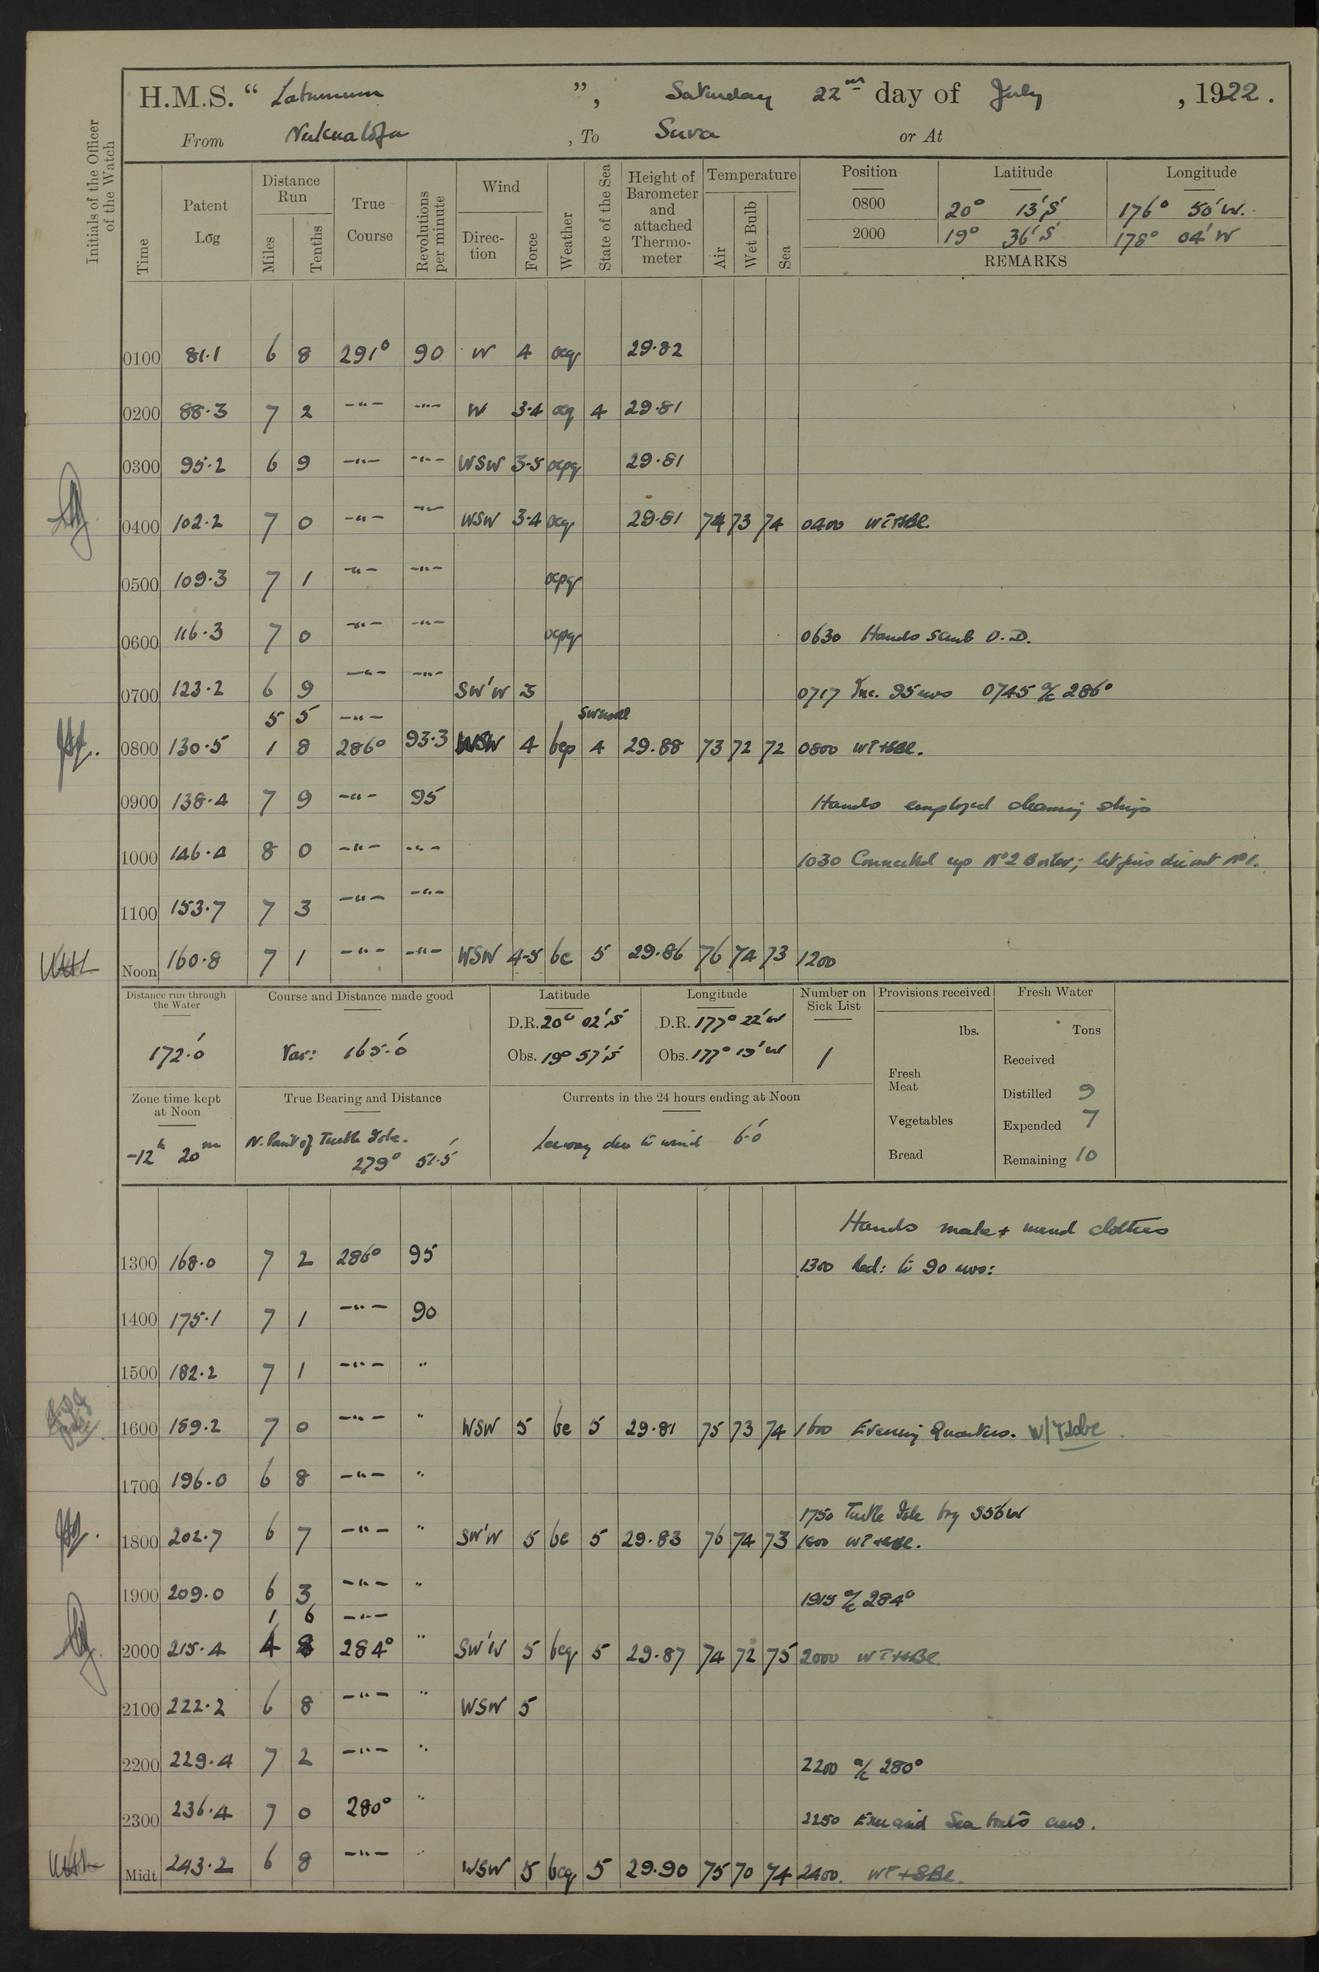 H.M.S. “ Laburnum ”, Saturday 22nd day of July, 1922.
From Nukualofa, To Suva or At
Initials of the Officer of the Watch
Time
Patent Log
Distance Run
Miles
Tenths
True Course
Revolutions per minute
Wind
Direction
Force
Weather
State of the Sea
Height of Barometer and attached Thermometer
Temperature
Air
Wet Bulb
Sea
Position Latitude Longitude
0800 20° 13'S 176° 50'W.
2000 19° 36'S 178° 04'W
REMARKS
0100 81.1 6 8 291° 90 W 4 ocq 29.82
0200 88.3 7 2 -"- -"- W 3-4 oq 4 29.81
0300 95.2 6 9 -"- -"- WSW 3-5 ocpq 29.81
0400 102.2 7 0 -"- -"- WSW 3-4 ocq 29.81 74 73 74 0400
0500 109.3 7 1 -"- -"- ocpq
0600 116.3 7 0 -"- -"- ocpq 0630 Hands scrub U.D.
0700 123.2 6 9 -"- -"- SW'W 3 0717 Inc. 95 revs 0745 a/c 286°
5 5 -"- SW swell
0800 130.5 1 8 286° 93.3 WSW 4 bcp 4 29.88 73 72 72 0800
0900 138.4 7 9 -"- 95 Hands employed cleaning ship
1000 146.4 8 0 -"- -"- 1030 Connected up No 2 Boiler; let fires die out No 1.
1100 153.7 7 3 -"- -"-
Noon 160.8 7 1 -"- -"- WSW 4-5 bc 5 29.86 76 74 73 1200
Distance run through the Water
172.0'
Course and Distance made good
Var: 165.0'
Latitude
D.R. 20° 02'S
Obs. 19° 57'S
Longitude
D.R. 177° 22'W
Obs. 177° 15'W
Number on Sick List
1
Provisions received
lbs.
Fresh Meat
Vegetables
Bread
Fresh Water
Tons
Received
Distilled 9
Expended 7
Remaining 10
Zone time kept at Noon
-12h 20m
True Bearing and Distance
N. Point of Turtle Isle.
279° 51.5'
Currents in the 24 hours ending at Noon
Leeway due to wind 6.0'
Hands make & mend clothes
1300 168.0 7 2 286° 95 1300 Red: to 90 revs:
1400 175.1 7 1 -"- 90
1500 182.2 7 1 -"- "
1600 189.2 7 0 -"- " WSW 5 bc 5 29.81 75 73 74 1600 Evening Quarters.
1700 196.0 6 8 -"- "
1750 Turtle Isle brg S56W
1800 202.7 6 7 -"- " SW'W 5 bc 5 29.83 76 74 73 1800
1900 209.0 6 3 -"- " 1915 a/c 284°
1 6 -"-
2000 215.4 4 8 284° " SW'W 5 bcq 5 29.87 74 72 75 2000
2100 222.2 6 8 -"- " WSW 5
2200 229.4 7 2 -"- " 2200 a/c 280°
2300 236.4 7 0 280° " 2250 Exercised Sea boat's crew.
Midt 243.2 6 8 -"- " WSW 5 bcq 5 29.90 75 70 74 2400.